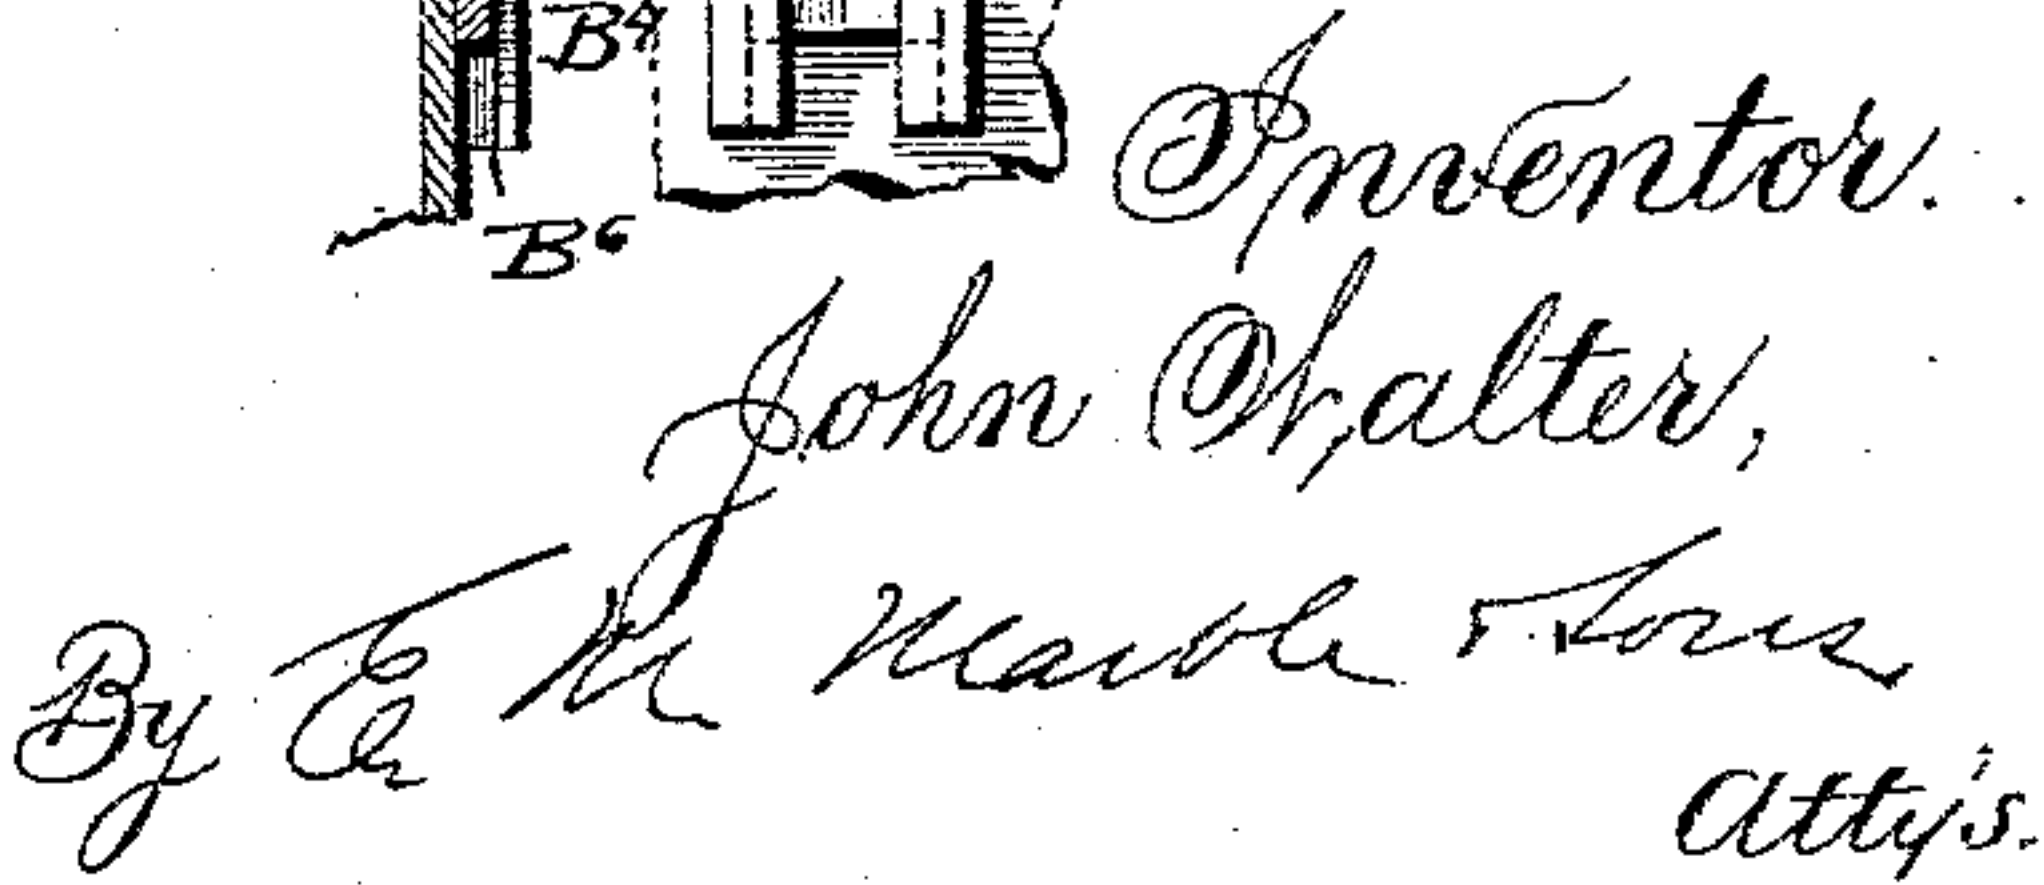 B⁴
B⁶
Inventor.
John Walter,
By E. M. Marble & Sons
Att'ys.